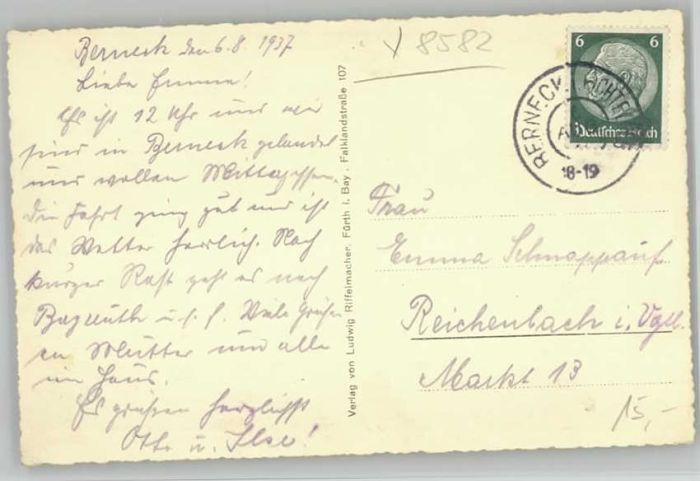 Berneck den 6.8.1937
Liebe Emma!
Es ist 12 Uhr und wir
sind in Berneck gelandet
und wollen Mittagessen.
Die Fahrt ging gut und ist
das Wetter herrlich. Nach
kurzer Rast geht es nach
Bayreuth u.s.f. Viele Grüße
an Mutter und alle
im Haus.
Es grüßen herzlichst
Otto u. Ilse!
Verlag von Ludwig Riffelmacher, Fürth i. Bay., Falklandstraße 107
8582
6 6
Deutsches Reich
BERNECK
18-19
Frau
Emma Schnappauf
Reichenbach i. Vgtl.
Markt 13
15,-